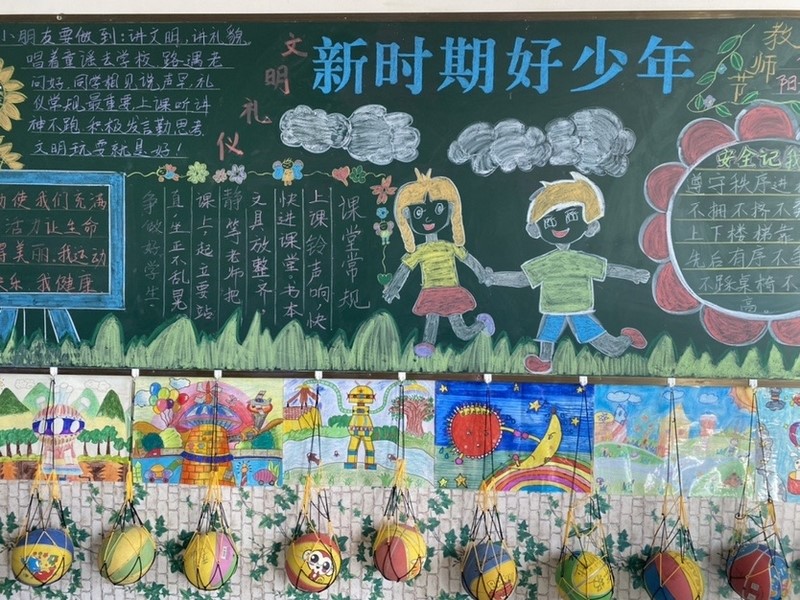 小朋友要做到:讲文明,讲礼貌
唱着童谣去学校,路遇老
问好,同学相见说声早,礼
仪常规最重要上课听讲
神不跑 积极发言勤思考
文明玩耍就是好!
文明礼仪
新时期好少年
教师节
阳
动使我们充满
活力让生命
得美丽.我运动
快乐.我健康
课堂常规
上课铃声响快
快进课堂.书本
文具放整齐.
静等老师把
课上.起立要站
直.坐正不乱晃
争做好学生.
安全记我
遵守秩序进
不拥不挤不
上下楼梯靠
先后有序不
不踩桌椅不
高